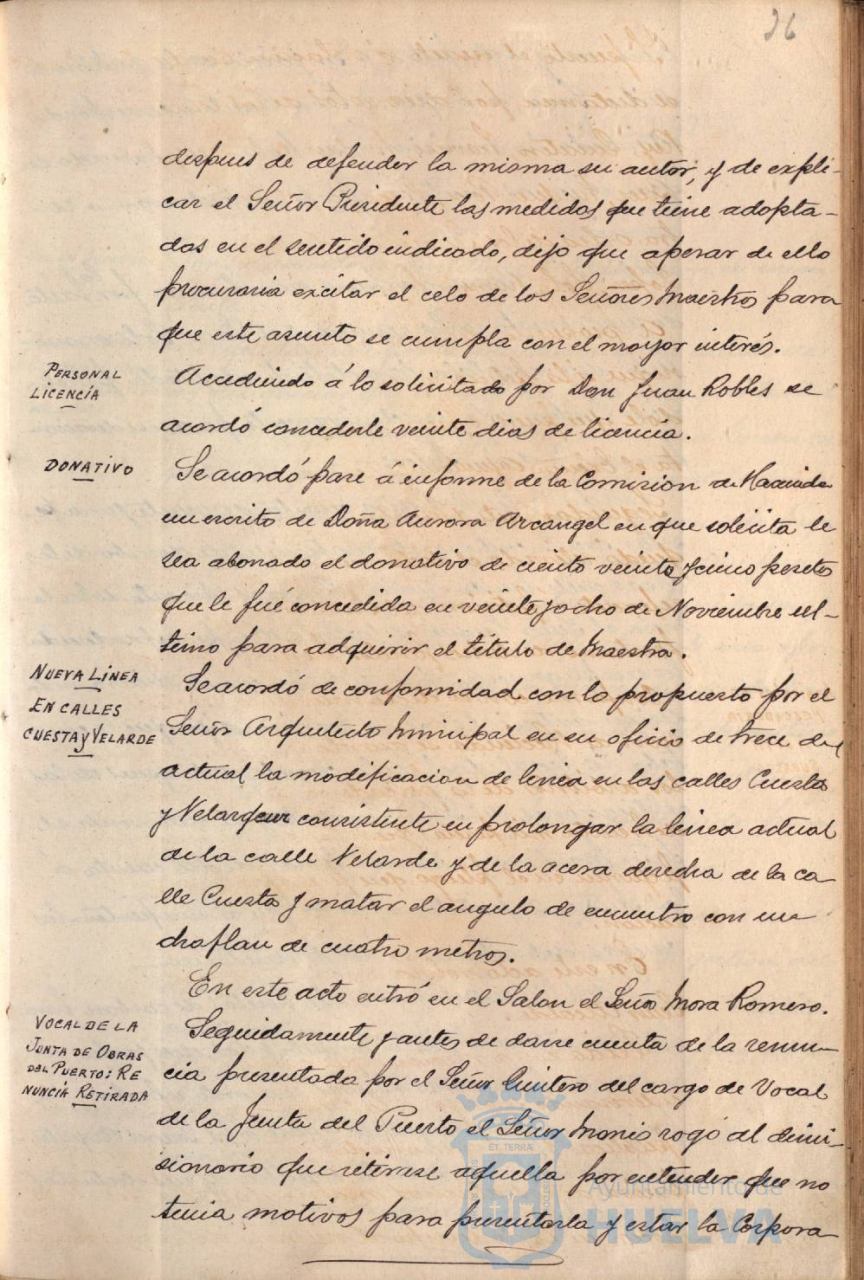 26
despues de defender la misma su autor, y de expli-
car el Señor Presidente las medidas que tiene adopta-
das en el sentido indicado, dijo que apesar de ello
procuraria excitar el celo de los Señores Maestros para
que este asunto se cumpla con el mayor interés.
PERSONAL
LICENCÍA
Accediendo á lo solicitado por Don Juan Robles se
acordó concederle veinte dias de licencia.
DONATIVO
Se acordó pase á informe de la Comision de Hacienda
un escrito de Doña Aurora Arcangel en que solicita le
sea abonado el donativo de ciento veinte y cinco pesetas
que le fué concedida en veinte y ocho de Noviembre úl-
timo para adquirir el título de Maestra.
NUEVA LÍNEA
EN CALLES
CUESTA y VELARDE
Se acordó de conformidad con lo propuesto por el
Señor Arquitecto Municipal en su oficio de trece del
actual la modificacion de linea en las calles Cuesta
y consistente en prolongar la linea actual
de la calle Velarde y de la acera derecha de la ca-
lle Cuesta y matar el angulo de encuentro con un
chaflan de cuatro metros.
En este acto entró en el Salon el Señor Mora Romero.
VOCAL DE LA
JUNTA DE OBRAS
DEL PUERTO: RE
NUNCIA RETIRADA
Seguidamente y antes de darse cuenta de la renun-
cia presentada por el Señor Quintero del cargo de Vocal
de la Junta del Puerto el Señor Monis rogó al dimi-
sionario que retirase aquella por entender que no
tenia motivos para presentarla y estar la Corpora
Ayuntamiento de
HUELVA